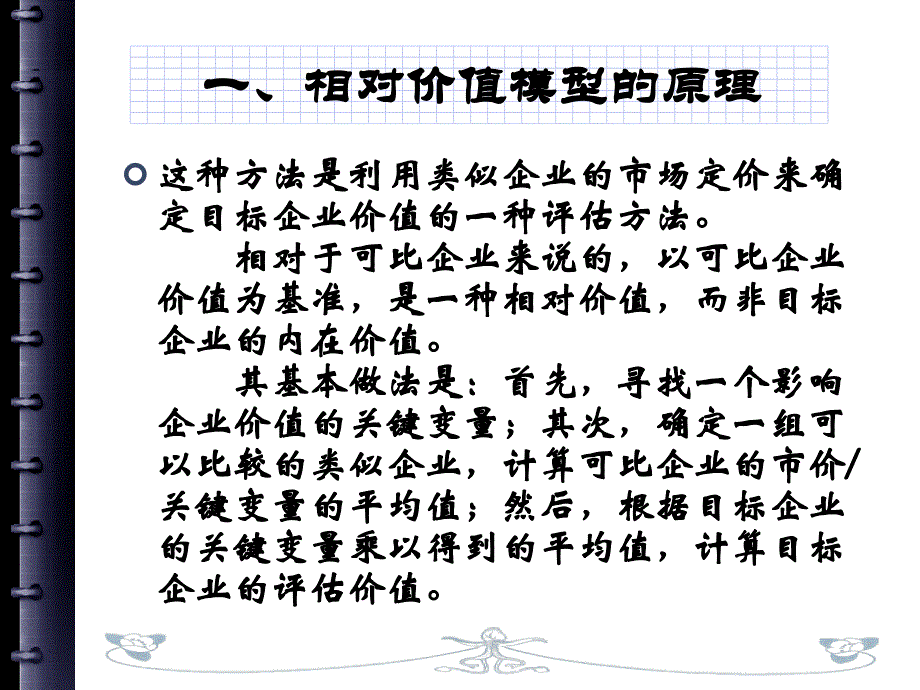 一、相对价值模型的原理
这种方法是利用类似企业的市场定价来确
定目标企业价值的一种评估方法。
相对于可比企业来说的，以可比企业
价值为基准，是一种相对价值，而非目标
企业的内在价值。
其基本做法是：首先，寻找一个影响
企业价值的关键变量；其次，确定一组可
以比较的类似企业，计算可比企业的市价/
关键变量的平均值；然后，根据目标企业
的关键变量乘以得到的平均值，计算目标
企业的评估价值。